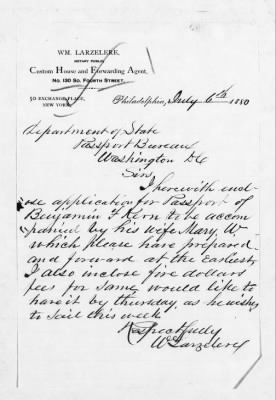 WM. LARZELERE,
NOTARY PUBLIC
Custom House and Forwarding Agent,
No. 130 So. Fourth Street,
50 EXCHANGE PLACE,
NEW YORK.
Philadelphia, July 6th 1880
Department of State
Passport Bureau
Washington DC
Sirs,
I herewith incl-
ose application for Passport of
Benjamin F. Hern to be accom
panied by his wife Mary. W
which please have prepared
and forward at the earliest
I also inclose five dollars
fees for same, would like to
have it by thursday, as he wishes
to sail this week
Respectfully
Wm Larzelere